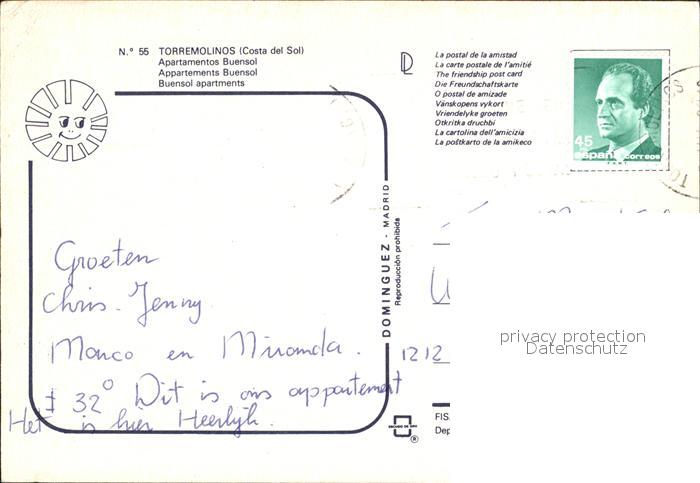 N.º 55 TORREMOLINOS (Costa del Sol)
Apartamentos Buensol
Appartements Buensol
Buensol apartments
La postal de la amistad
La carte postale de l'amitié
The friendship post card
Die Freundschaftskarte
O postal de amizade
Vänskopens vykort
Vriendelyke groeten
Otkritka druchbi
La cartolina dell'amicizia
La poŝtkarto de la amikeco
45
españa correos
DOMINGUEZ - MADRID
Reproducción prohibida
Groeten
Chris - Jenny
Marco en Miranda.
± 32° Dit is ons appartement
Het is hier Heerlijk.
1212
privacy protection
Datenschutz
ESCUDO DE ORO
®
FIS
Dep